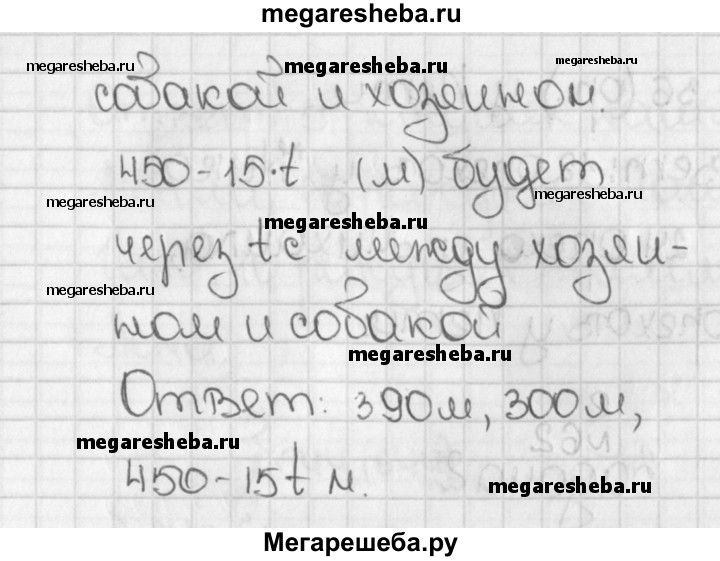 megaresheba.ru
megaresheba.ru megaresheba.ru megaresheba.ru
собакой и хозяином.
450-15·t (м) будет
megaresheba.ru megaresheba.ru megaresheba.ru
через t с между хозяи-
megaresheba.ru
ном и собакой
megaresheba.ru
Ответ: 390м, 300м,
megaresheba.ru
450-15t м.
megaresheba.ru
Мегарешеба.ру